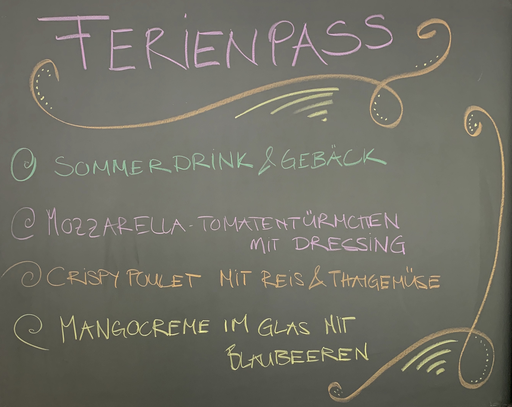 FERIENPASS
SOMMERDRINK & GEBÄCK
MOZZARELLA-TOMATENTÜRMCHEN
MIT DRESSING
CRISPY POULET MIT REIS & THAIGEMÜSE
MANGOCREME IM GLAS MIT
BLAUBEEREN